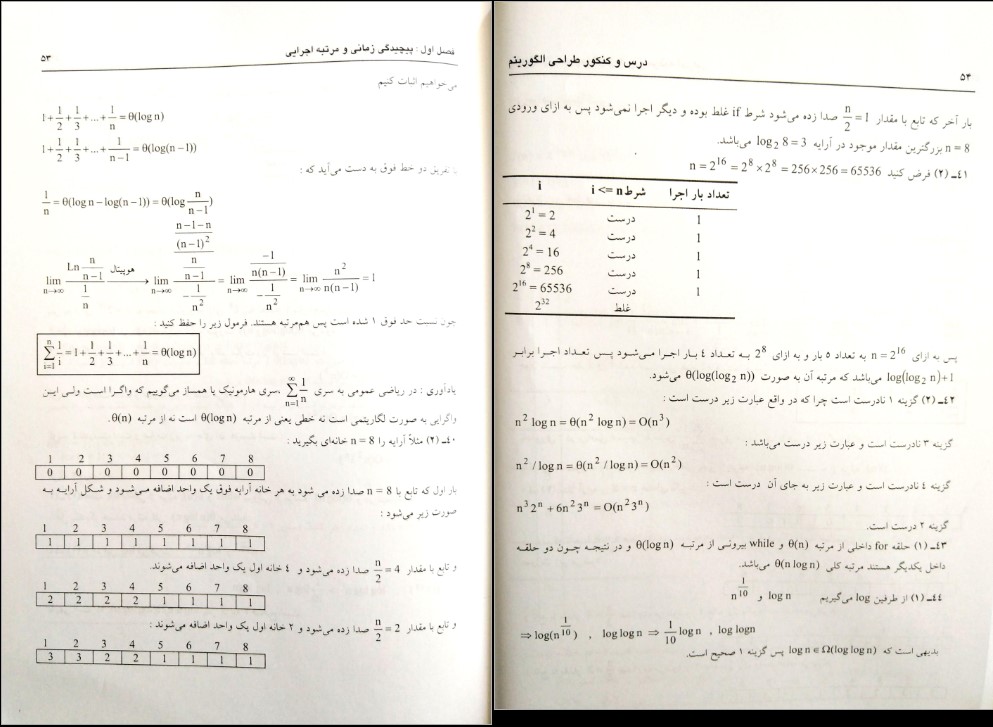 فصل اول : پیچیدگی زمانی و مرتبه اجرایی ۵۳
می‌خواهیم اثبات کنیم
1+1/2+1/3+...+1/n = θ(log n)
1+1/2+1/3+...+1/(n−1) = θ(log(n−1))
با تفریق دو خط فوق به دست می‌آید که :
1/n = θ(log n − log(n−1)) = θ(log n/(n−1))
lim n→∞ (Ln n/(n−1))/(1/n) هوپیتال → lim n→∞ (((n−1−n)/(n−1)²)/(n/(n−1)))/(−1/n²) = lim n→∞ (−1/(n(n−1)))/(−1/n²) = lim n→∞ n²/(n(n−1)) = 1
چون نسبت حد فوق ۱ شده است پس هم‌مرتبه هستند. فرمول زیر را حفظ کنید :
∑ i=1 n 1/i = 1+1/2+1/3+...+1/n = θ(log n)
یادآوری : در ریاضی عمومی به سری ∑ n=1 ∞ 1/n ،سری هارمونیک یا همساز می‌گوییم که واگرا است ولی این
واگرایی به صورت لگاریتمی است نه خطی یعنی از مرتبه θ(log n) است نه از مرتبه θ(n).
۴۰ـ (۲) مثلاً آرایه را n = 8 خانه‌ای بگیرید :
1 2 3 4 5 6 7 8
0 0 0 0 0 0 0 0
بار اول که تابع با n = 8 صدا زده می شود به هر خانه آرایه فوق یک واحد اضافه می‌شود و شکل آرایه به
صورت زیر می‌شود :
1 2 3 4 5 6 7 8
1 1 1 1 1 1 1 1
و تابع با مقدار n/2 = 4 صدا زده می‌شود و ٤ خانه اول یک واحد اضافه می‌شوند.
1 2 3 4 5 6 7 8
2 2 2 2 1 1 1 1
و تابع با مقدار n/2 = 2 صدا زده می‌شود و ۲ خانه اول یک واحد اضافه می‌شوند :
1 2 3 4 5 6 7 8
3 3 2 2 1 1 1 1
درس و کنکور طراحی الگوریتم ۵۴
بار آخر که تابع با مقدار n/2 = 1 صدا زده می‌شود شرط if غلط بوده و دیگر اجرا نمی‌شود پس به ازای ورودی
n = 8 بزرگترین مقدار موجود در آرایه log₂ 8 = 3 می‌باشد.
٤١ـ (٢) فرض کنید n = 2¹⁶ = 2⁸ × 2⁸ = 256×256 = 65536
i شرط i <= n تعداد بار اجرا
2¹ = 2 درست 1
2² = 4 درست 1
2⁴ = 16 درست 1
2⁸ = 256 درست 1
2¹⁶ = 65536 درست 1
2³² غلط
پس به ازای n = 2¹⁶ به تعداد ٥ بار و به ازای 2⁸ به تعداد ٤ بار اجرا می‌شود پس تعداد اجرا برابر
log(log₂ n)+1 می‌باشد که مرتبه آن به صورت θ(log(log₂ n)) می‌شود.
٤٢ـ (٢) گزینه ۱ نادرست است چرا که در واقع عبارت زیر درست است :
n² log n = θ(n² log n) = O(n³)
گزینه ۳ نادرست است و عبارت زیر درست می‌باشد :
n² / log n = θ(n² / log n) = O(n²)
گزینه ٤ نادرست است و عبارت زیر به جای آن درست است :
n³2ⁿ + 6n²3ⁿ = O(n²3ⁿ)
گزینه ۲ درست است.
٤٣ـ (۱) حلقه for داخلی از مرتبه θ(n) و while بیرونی از مرتبه θ(log n) و در نتیجه چون دو حلقه
داخل یکدیگر هستند مرتبه کلی θ(n log n) می‌باشد.
٤٤ـ (۱) از طرفین log می‌گیریم log n و n^(1/10)
⇒ log(n^(1/10)) , log log n ⇒ 1/10 log n , log logn
بدیهی است که log n ∈ Ω(log log n) پس گزینه ۱ صحیح است.